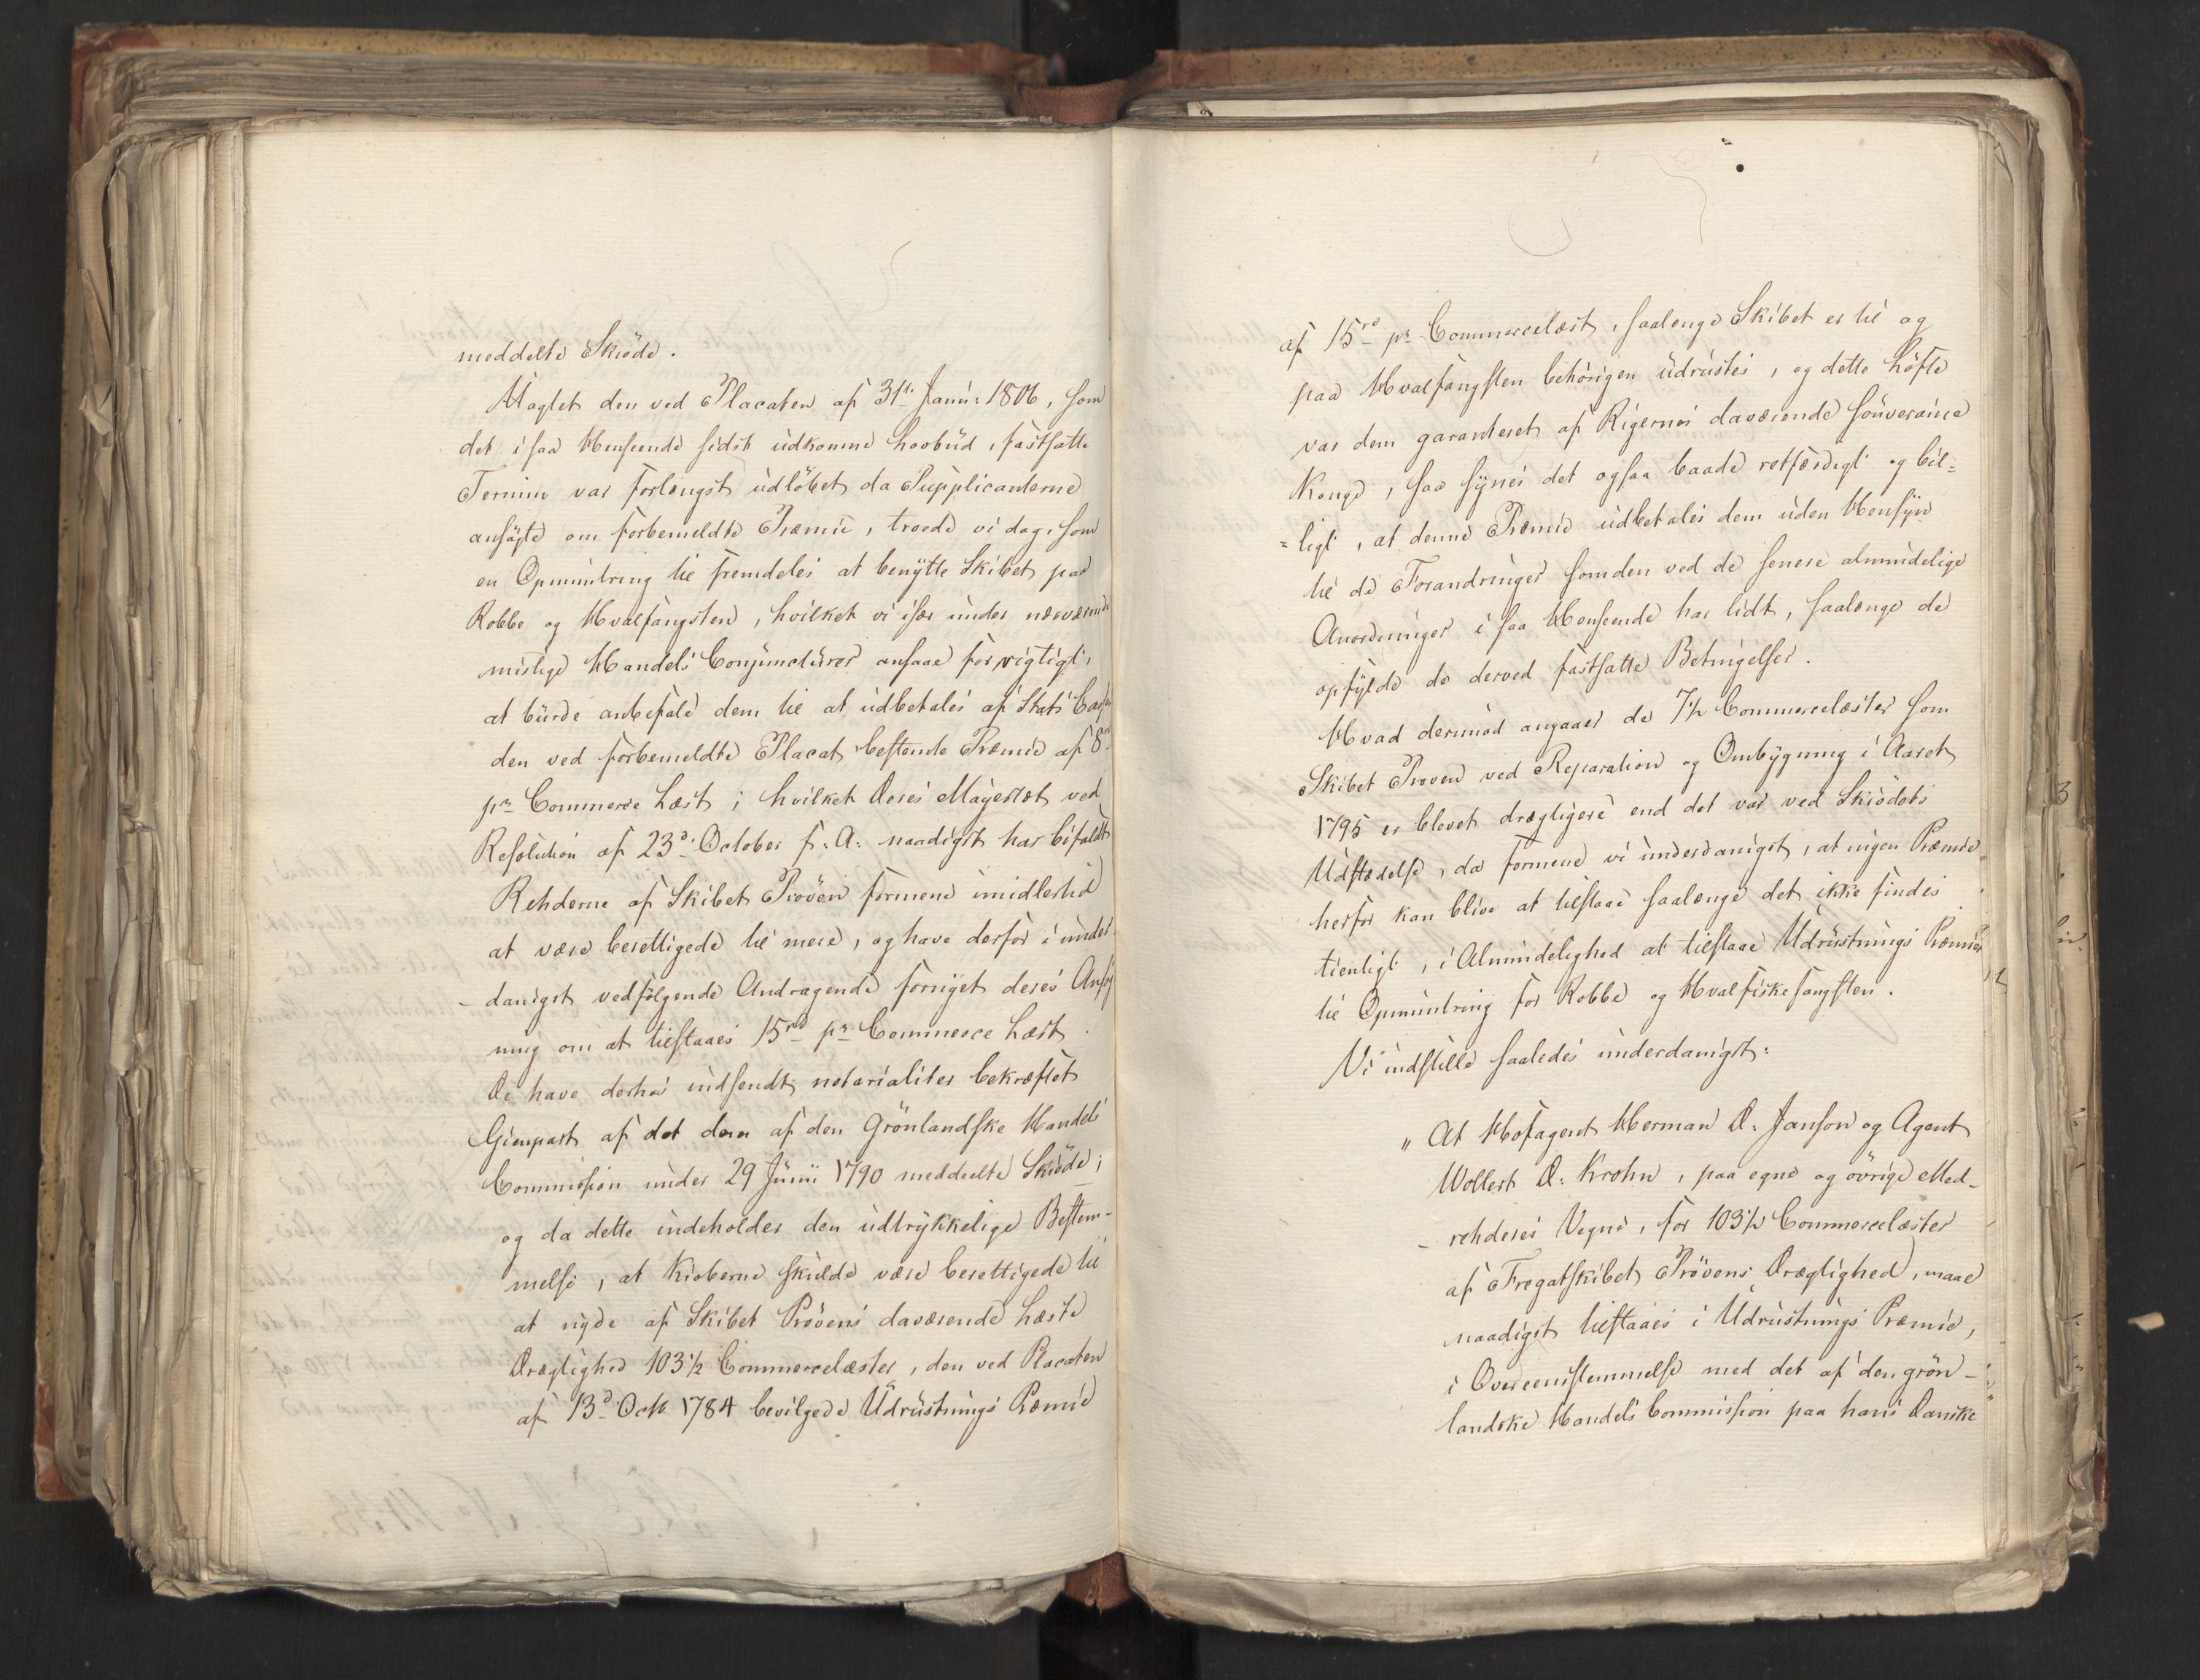 meddelte Skiöde.
Uagtet den ved Placaten af 31te Janu: 1806, som
det i saa Henseende sidst udkomne Lovbud, fastsatte
Termin var forlængst udlöbet da Supplicanterne
ansögte om forbemeldte Præmie, troede vi dog, som
en Opmuntring til fremdeles at benytte Skibet paa
Robbe og Hvalfangsten, hvilket vi især under nærværende
mislige Handels Conjuncturer ansaae for vigtigt,
at burde anbefale dem til at udbetales af Stats Cassen
den ved forbemeldte Placat bestemte Præmie af 8rd
pr Commerce Læst; hvilket Deres Majestæt ved
Resolution af 23d October f: A: naadigst har bifaldt
Rehderne af Skibet Pröven formene imidlertid
at være berettigede til mere, og have derfor i under-
-danigst vedfölgende Andragende fornyet deres Ansög
ning om at tilstaaes 15rd pr Commerce Læst.
De have derhos indsendt notarialiter bekræftet
Gienpart af det dem af den Grönlandske Handels
Commission under 29 Junii 1790 meddeelte Skiöde;
og da dette indeholder den udtrykkelige Bestem-
melse, at Kioberne skulde være berettigede til
at nyde af Skibet Prövens daværende Læste
Drægtighed 103½ Commercelæster, den ved Placaten
af 13d Octb 1784 bevilgede Udrustnings Præmie
af 15rd pr Commercelæst, saalenge Skibet er til og
paa Hvalfangsten behörigen udrustes, og dette Löfte
var dem garanteret af Rigernes daværende souveraine
Konge, saa synes det ogsaa baade retfærdigt og bil=
=ligt, at denne Præmie udbetales dem uden Hensyn
til de Forandringer som den ved de senere almindelige
Anordninger i saa Henseende har lidt, saalænge de
opfylde de derved fastsatte Betingelser.
Hvad derimod angaaer de 7½ Commercelæster som
Skibet Pröven ved Reparation og Ombygning i Aaret
1795 er blevet drægtigere end det var ved Skiödets
Udstædelse, da formene vi underdanigst, at ingen Præmie
herfor kan blive at tilstaae saalænge det ikke findes
tienligt, i Almindelighed at tilstaae Udrustnings Præmier
til Opmuntring for Robbe og Hvalfiskefangsten.
Vi indstille saaledes underdanigst:
„ At Hofagent Herman D: Janson og Agent
Wollert D: Krohn, paa egne og övrige Med-
-rehderes Vegne, for 103½ Commercelæster
af Fregatskibet Prövens Drægtighed, maae
naadigst tilstaaes i Udrustnings Præmie,
i Overeenstemmelse med det af den grön-
landske Handels Commission paa hans Danske